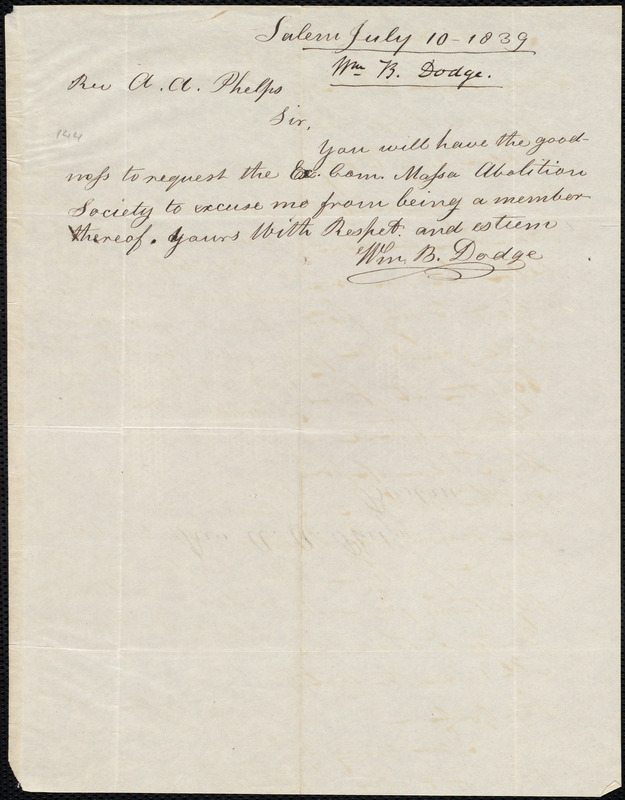 Salem July 10 - 1839
Wm B. Dodge.
Rev A. A. Phelps
Sir,
144
You will have the good-
ness to request the Ex. Com. Massa Abolition
Society to excuse me from being a member
thereof. Yours With Respet. and esteem
Wm B. Dodge